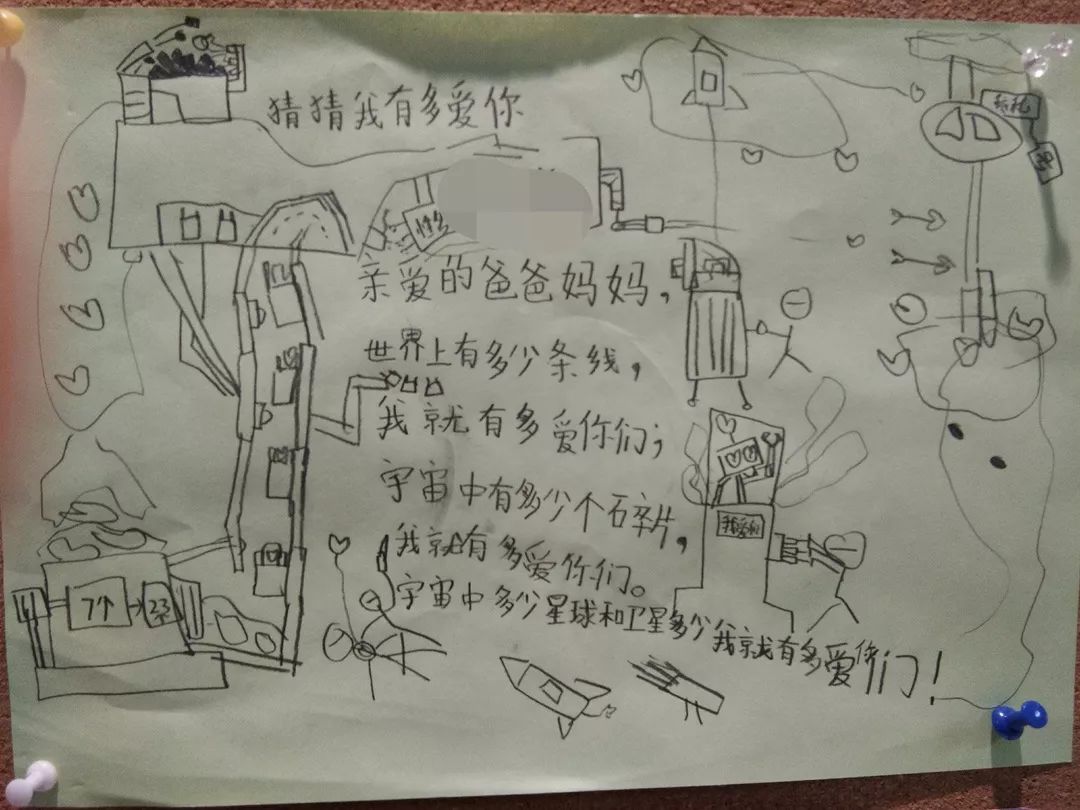 猜猜我有多爱你
亲爱的爸爸妈妈，
世界上有多少条线，
我就有多爱你们；
宇宙中有多少个石碎片，
我就有多爱你们。
宇宙中多少星球和卫星多少我就有多爱你们！
7个
我爱你